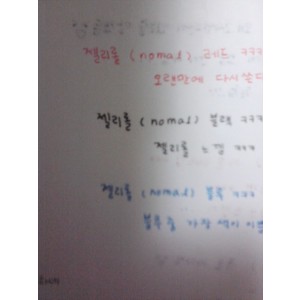 젤리롤 (nomal) 레드 ㅋㅋㅋ
오랜만에 다시쓴다
젤리롤 (nomal) 블랙 ㅋㅋㅋ
젤리롤 느낌 ㅋㅋㅋ
젤리롤 (nomal) 블루 ㅋㅋㅋ
블루 중 가장 색이 이쁜